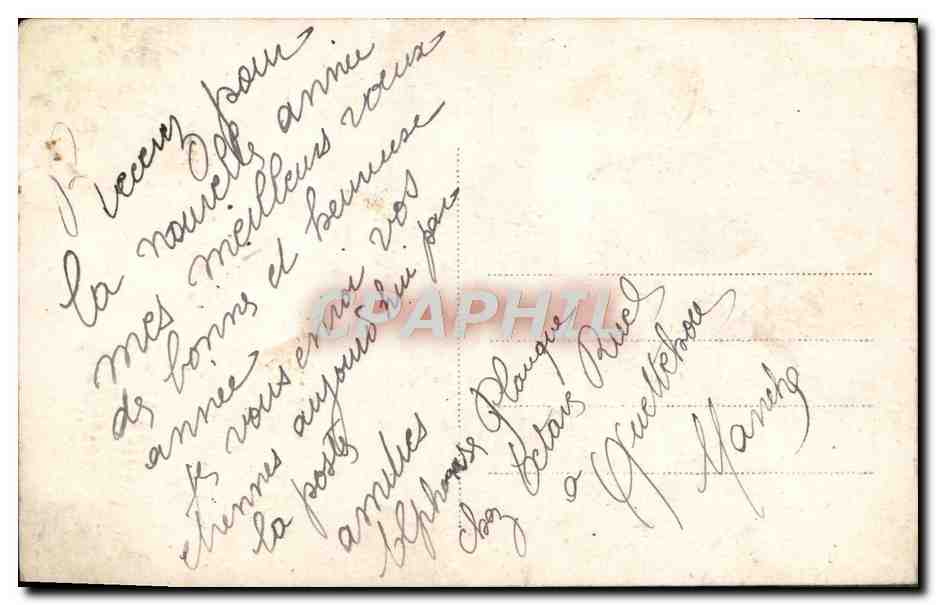 Recevez pour
la nouvelle année
mes meilleurs voeux
de bonne et heureuse
année
je vous envoi vos
étrennes aujourd'hui par
la poste
amities
Alphonse Planque
chez Octave Ruel
a Quettehou
Manche
CPAPHIL